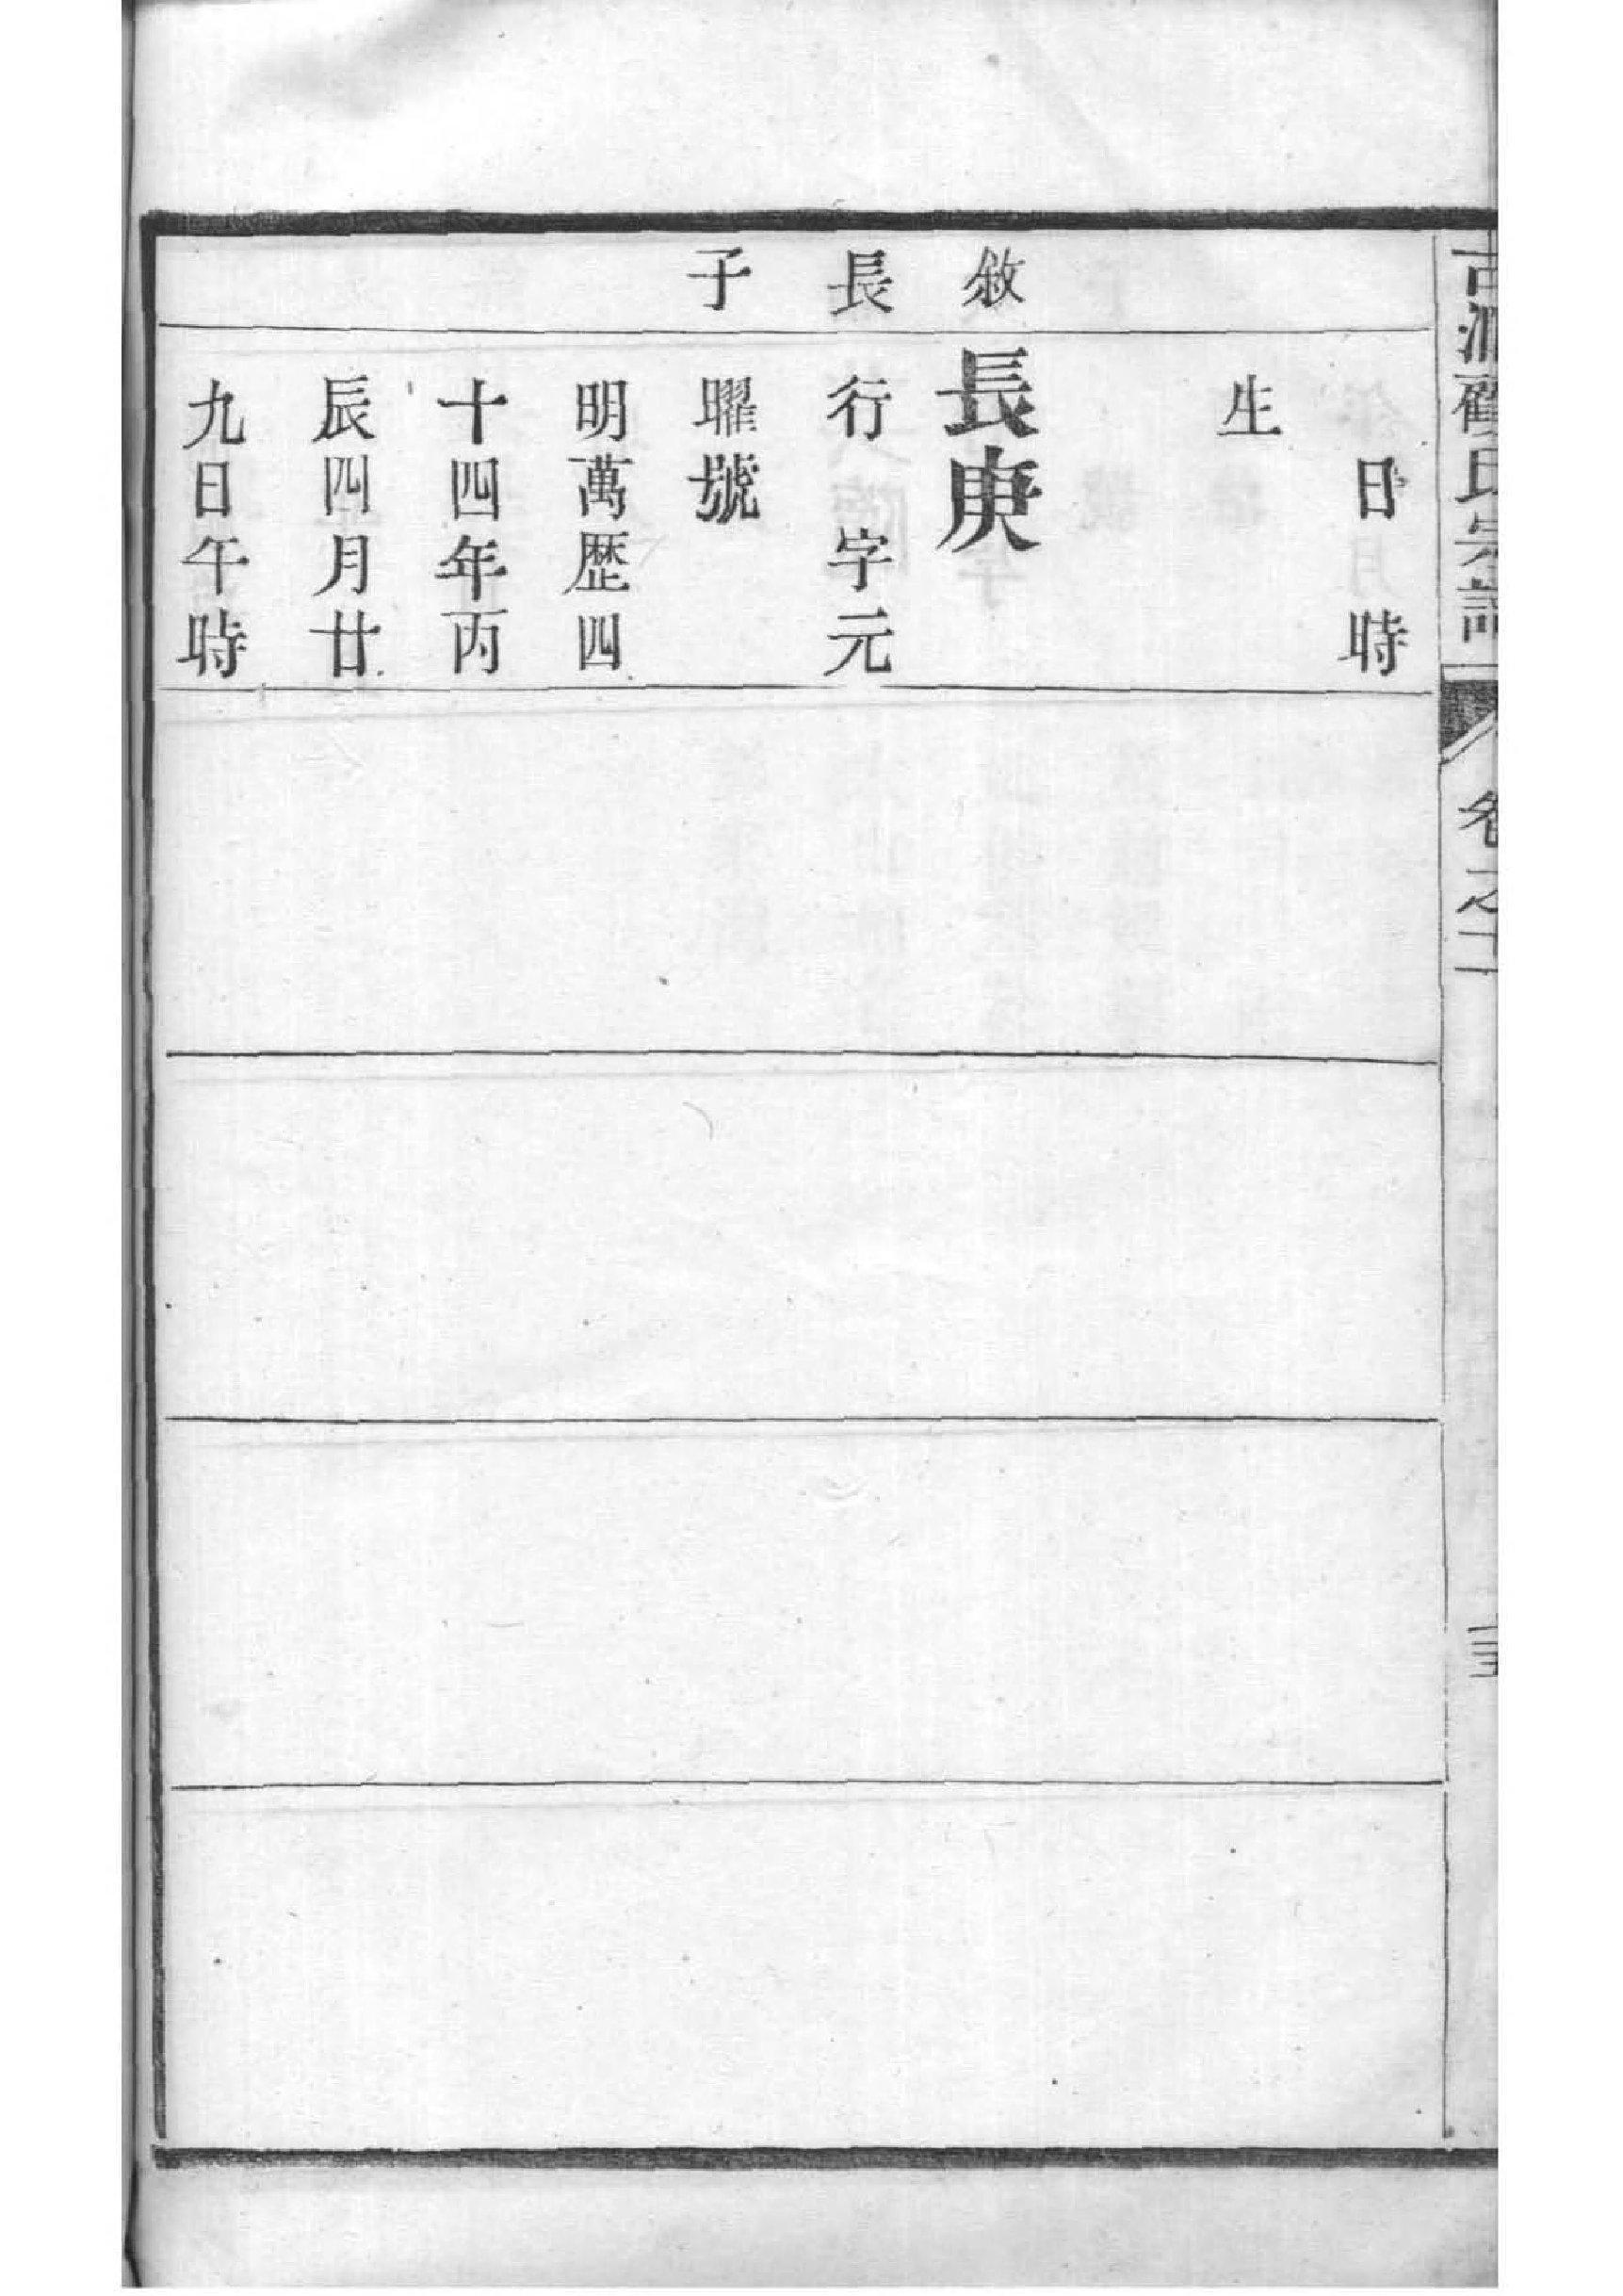 日　時
生
敘
長庚
長
行　字元
子
曜號
明萬歷四
十四年丙
辰四月廿
九日午時
氏宗譜
卷之十